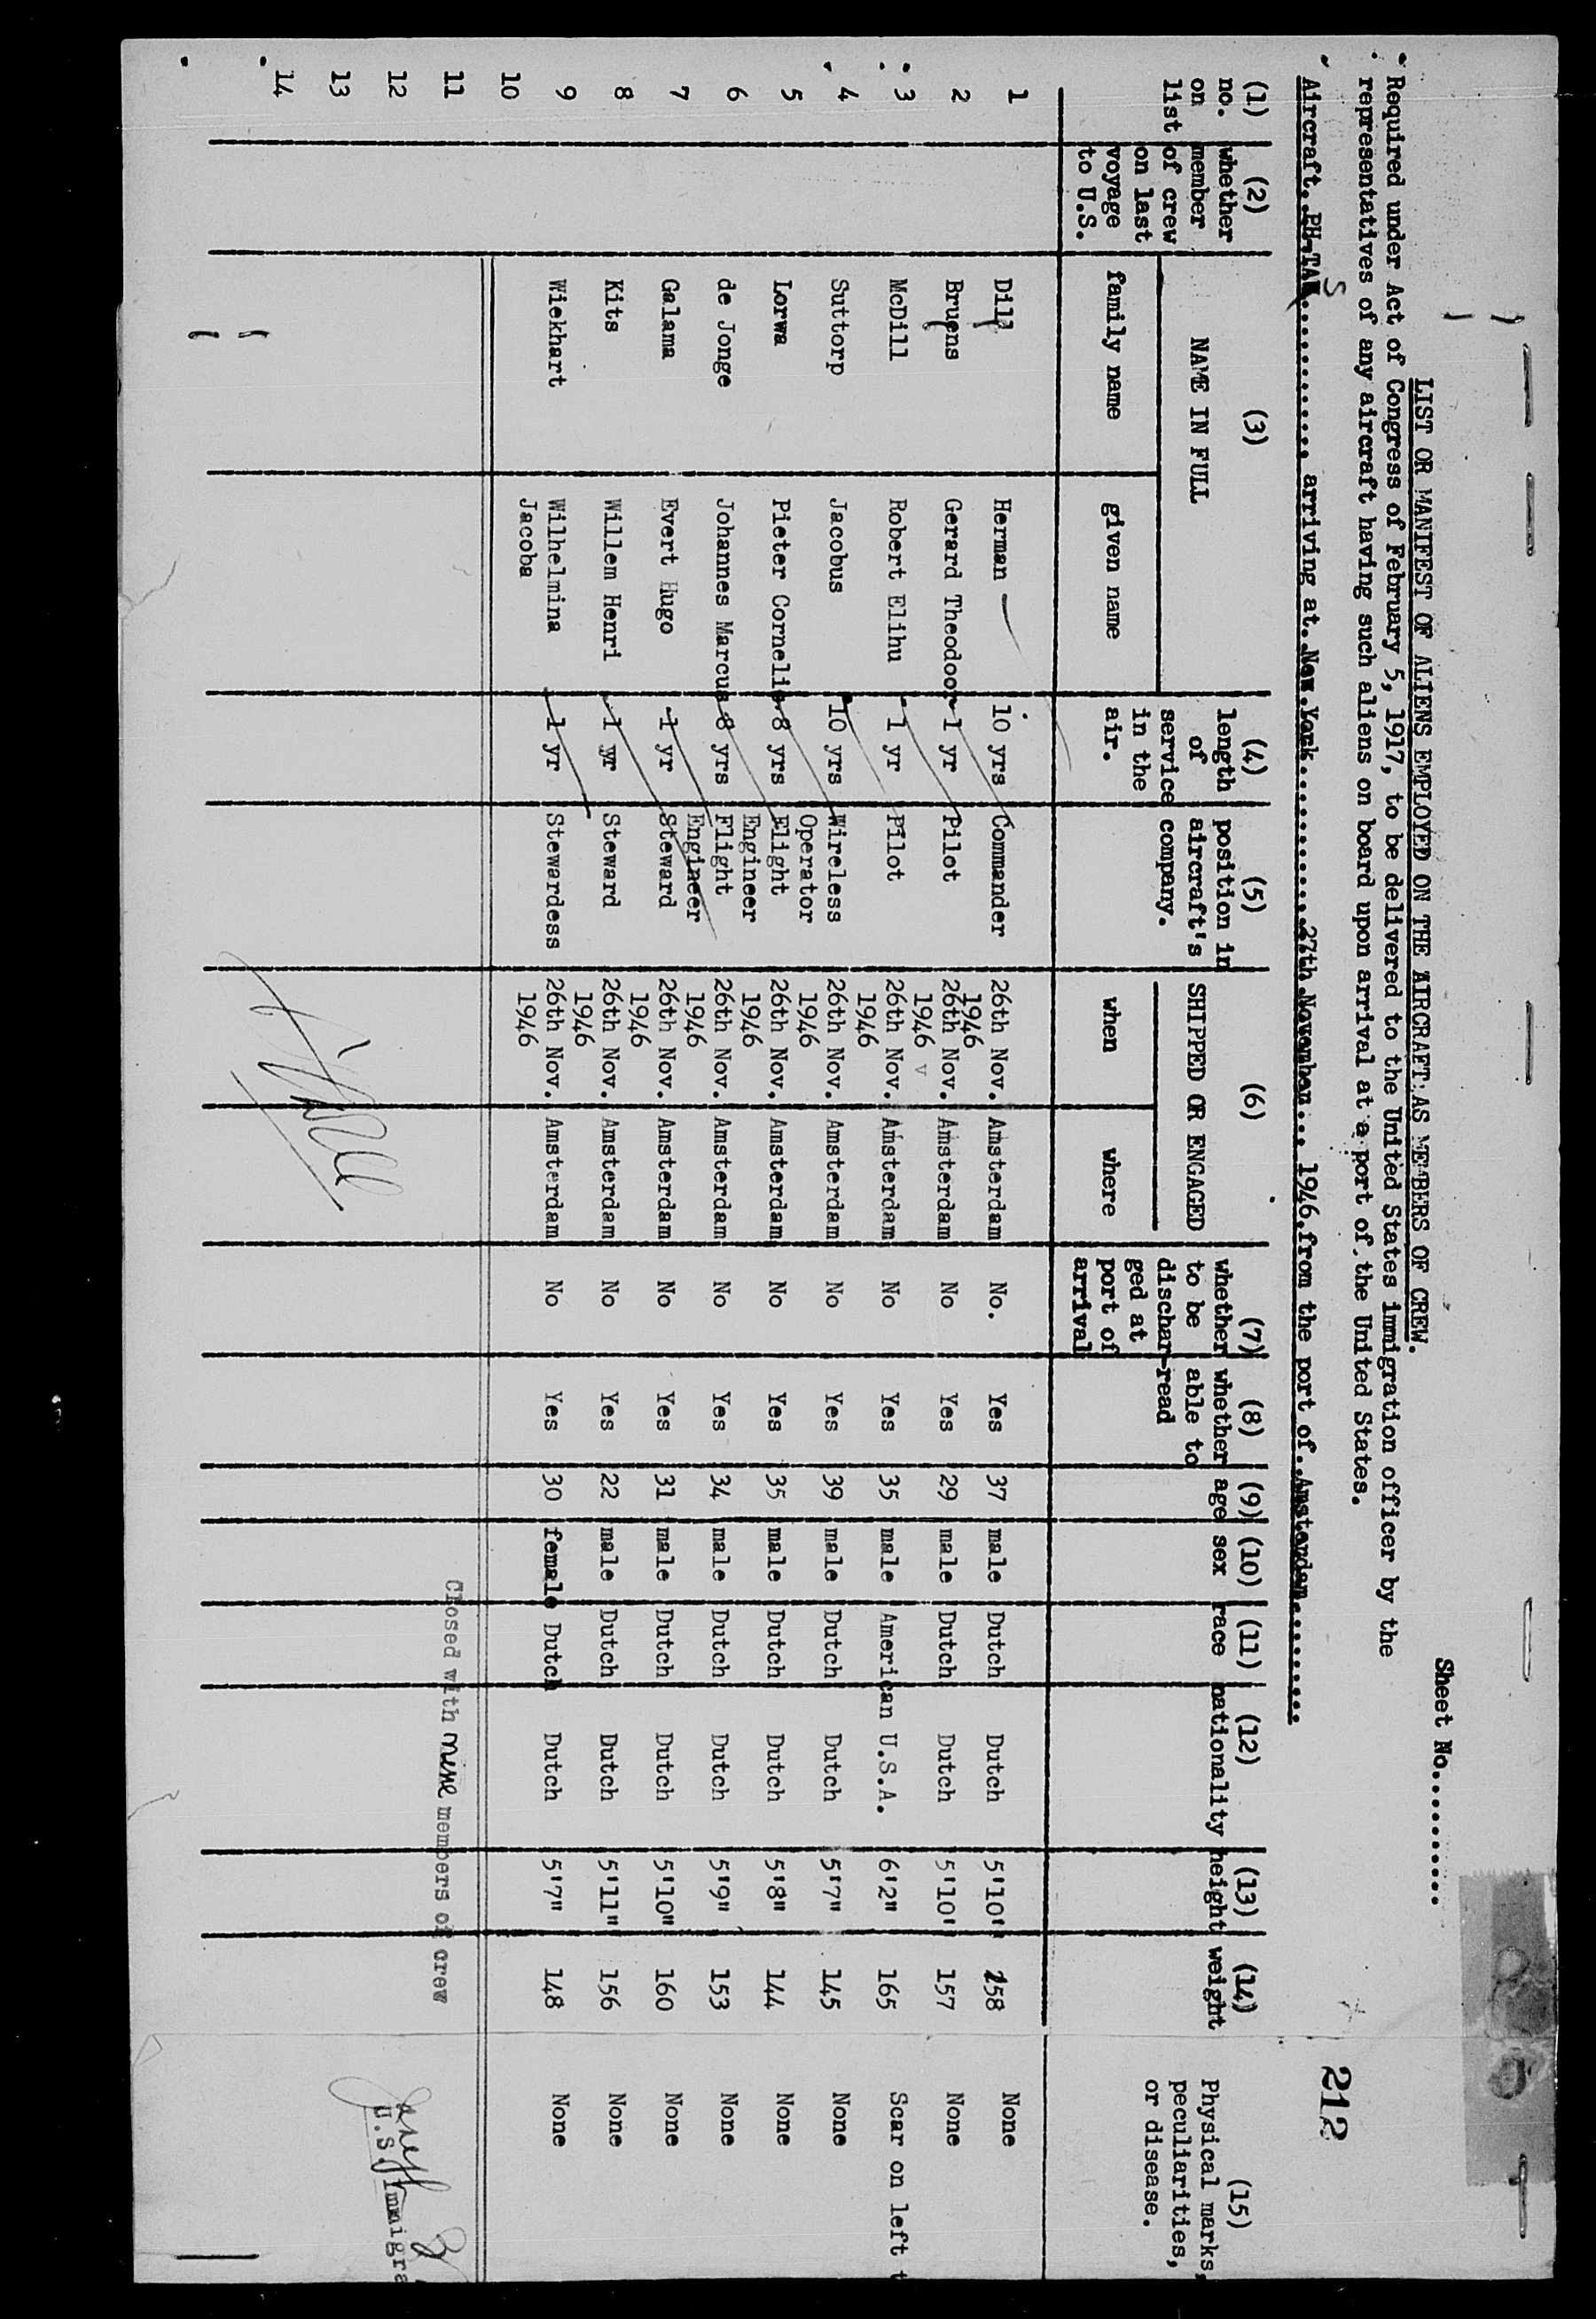 Sheet No..........
LIST OR MANIFEST OF ALIENS EMPLOYED ON THE AIRCRAFT AS MEMBERS OF CREW.
Required under Act of Congress of February 5, 1917, to be delivered to the United States immigration officer by the
representatives of any aircraft having such aliens on board upon arrival at a port of the United States.
212
Aircraft. PH-TA S ............ arriving at. New York.............27th November... 1946.from the port of. Amsterdam..........
(1) (2) (3) (4) (5) (6) (7) (8) (9) (10) (11) (12) (13) (14) (15)
no. on list
whether member of crew on last voyage to U.S.
NAME IN FULL
family name
given name
length of service in the air.
position in aircraft's company.
SHIPPED OR ENGAGED
when
where
whether to be dischar-ged at port of arrival
whether able to read
age
sex
race
nationality
height
weight
Physical marks, peculiarities, or disease.
1 Dill Herman 10 yrs Commander 26th Nov. 1946 Amsterdam No. Yes 37 male Dutch Dutch 5'10" 158 None
2 Bruens Gerard Theodoor 1 yr Pilot 26th Nov. 1946 Amsterdam No Yes 29 male Dutch Dutch 5'10' 157 None
3 McDill Robert Elihu 1 yr Pilot 26th Nov. 1946 Amsterdam No Yes 35 male American U.S.A. 6'2" 165 Scar on left
4 Suttorp Jacobus 10 yrs Wireless Operator 26th Nov. 1946 Amsterdam No Yes 39 male Dutch Dutch 5'7" 145 None
5 Lorwa Pieter Cornelis 8 yrs Flight Engineer 26th Nov. 1946 Amsterdam No Yes 35 male Dutch Dutch 5'8" 144 None
6 de Jonge Johannes Marcus 8 yrs Flight Engineer 26th Nov. 1946 Amsterdam No Yes 34 male Dutch Dutch 5'9" 153 None
7 Galama Evert Hugo 1 yr Steward 26th Nov. 1946 Amsterdam No Yes 31 male Dutch Dutch 5'10" 160 None
8 Kits Willem Henri 1 yr Steward 26th Nov. 1946 Amsterdam No Yes 22 male Dutch Dutch 5'11" 156 None
9 Wiekhart Wilhelmina Jacoba 1 yr Stewardess 26th Nov. 1946 Amsterdam No Yes 30 female Dutch Dutch 5'7" 148 None
10
11
Closed with nine members of crew
12
13
14
U.S. Immigra